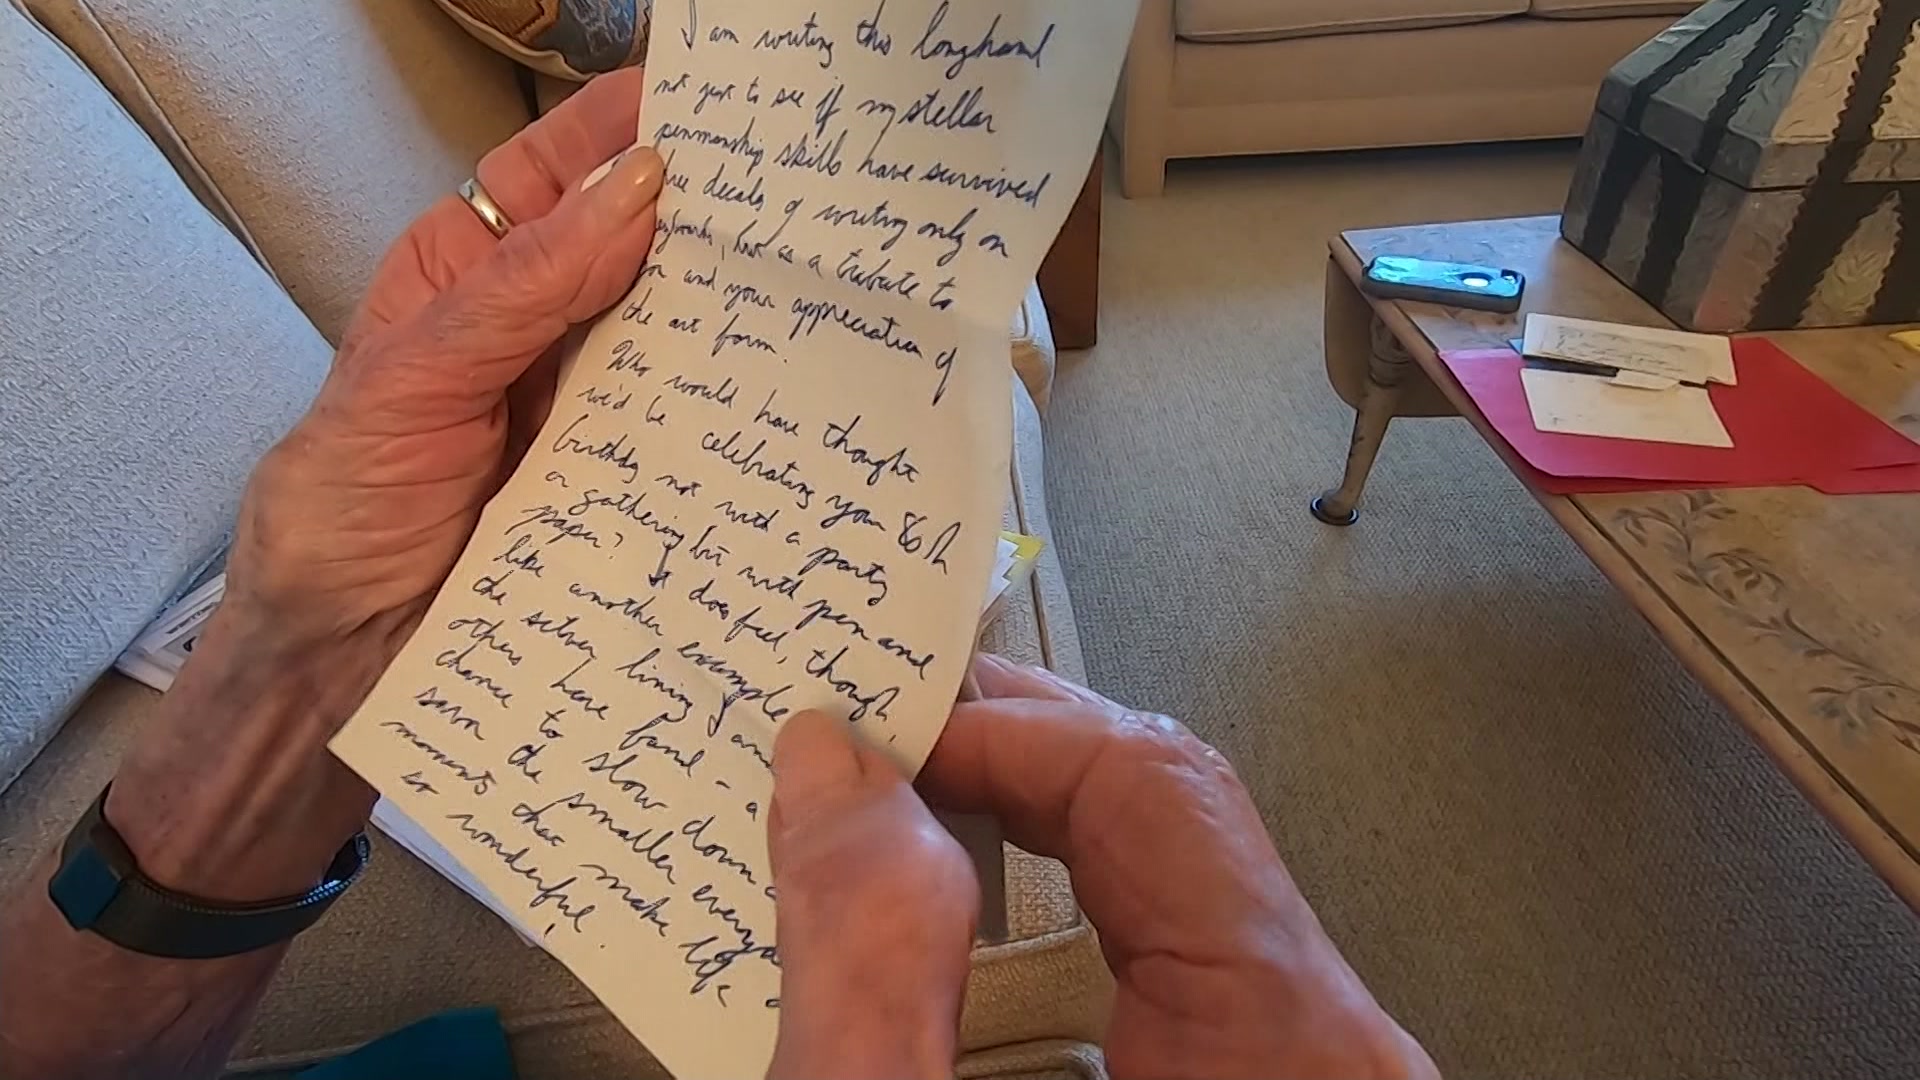 I am writing this longhand
not just to see if my stellar
penmanship skills have survived
decades of writing only on
but as a tribute to
and your appreciation of
the art form.
Who would have thought
we'd be celebrating your 86th
birthday not with a party
or gathering but with pen and
paper? It does feel, though,
like another example
the silver lining
others have found - a
chance to slow down
the smaller
moments that make life
so wonderful.